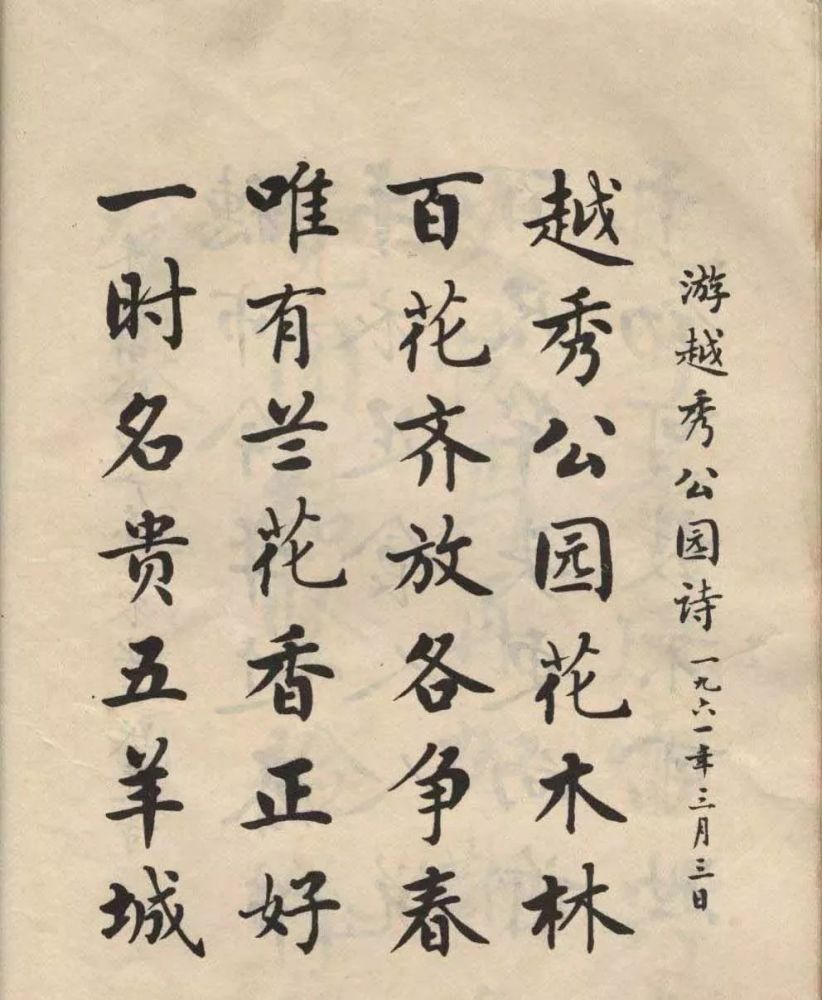 游越秀公园诗 一九六一年三月三日
越秀公园花木林
百花齐放各争春
唯有兰花香正好
一时名贵五羊城